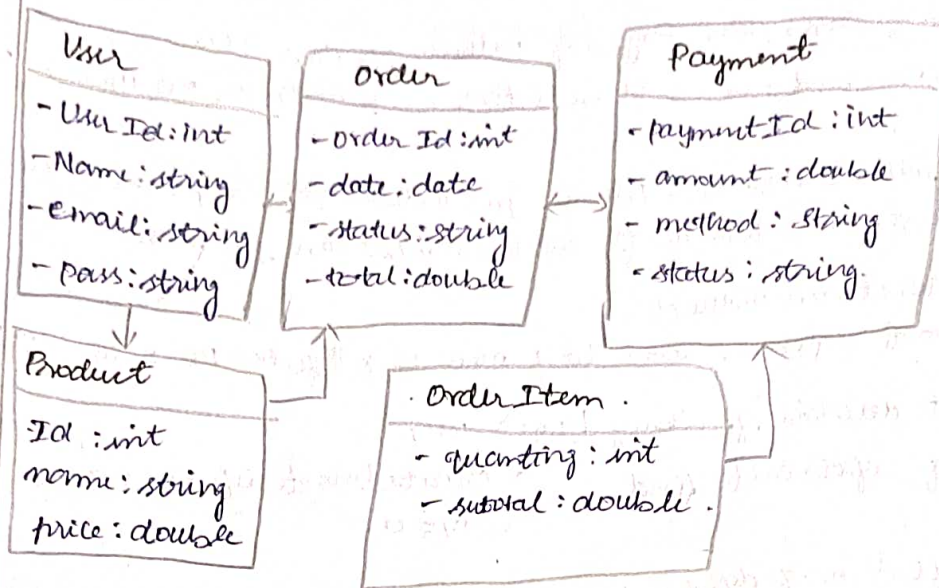 User
- User Id : int
- Name : string
- email : string
- pass : string
Order
- Order Id : int
- date : date
- status : string
- total : double
Payment
- payment Id : int
- amount : double
- method : string
- status : string.
Product
Id : int
name : string
price : double
. Order Item .
- quanting : int
- subtotal : double .